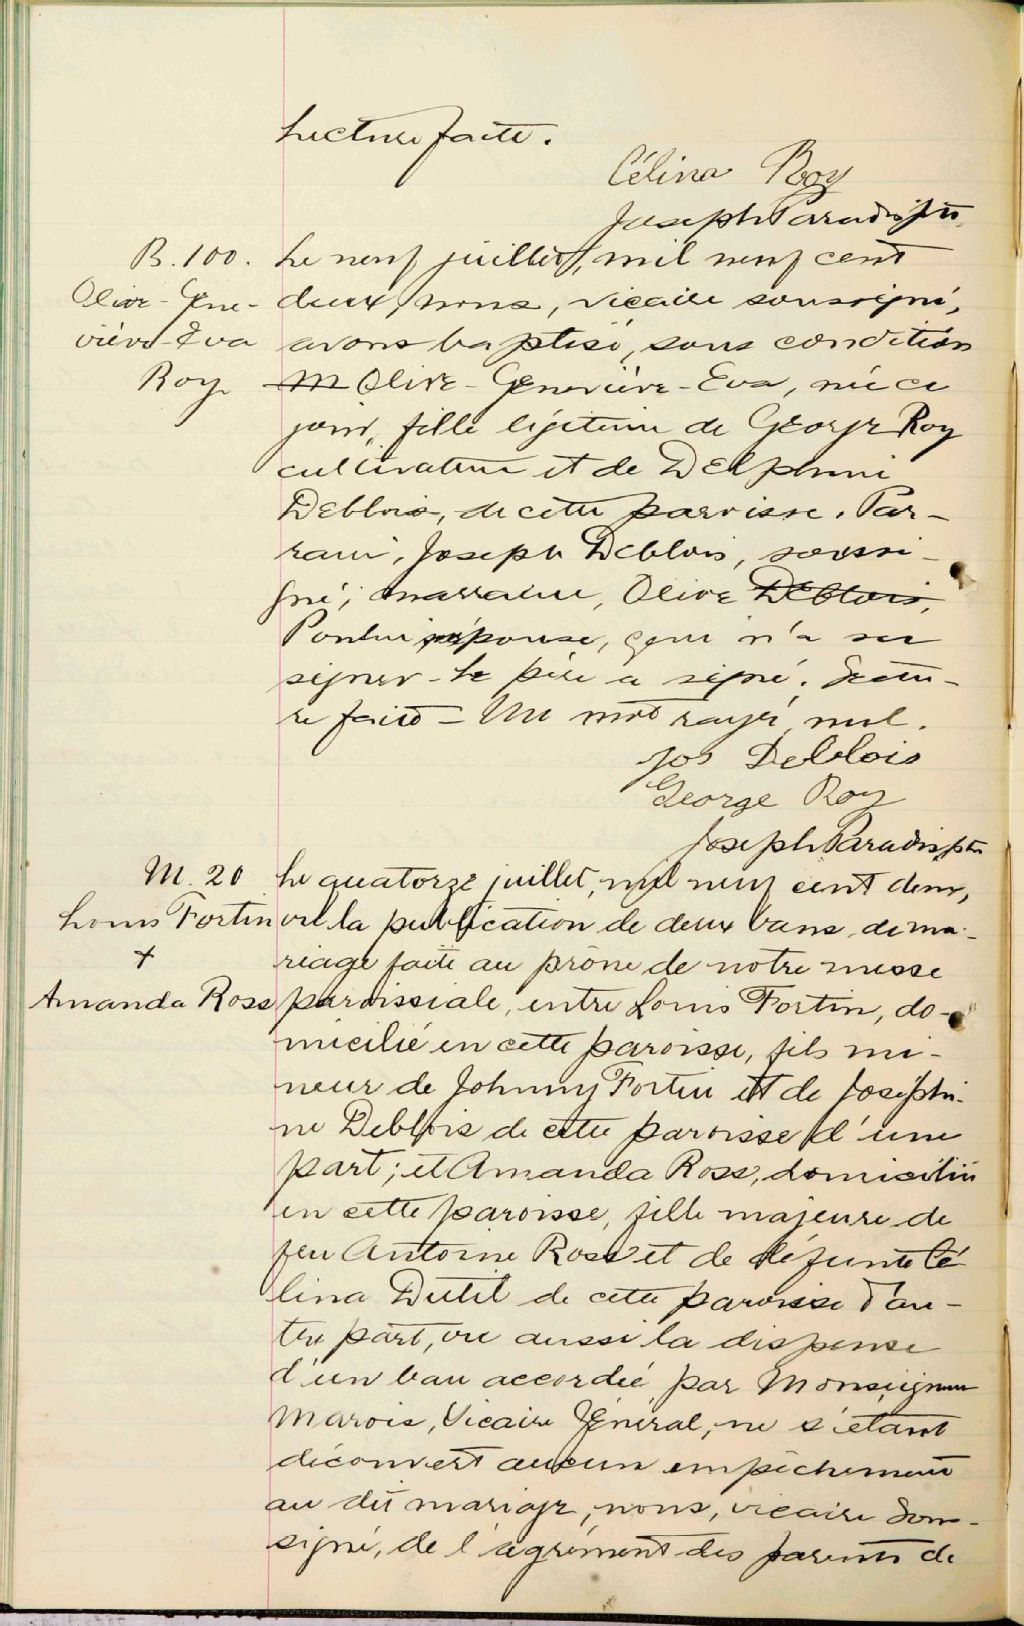 Lecture faite.
Célina Roy
Joseph Paradis ptre
B. 100.
Olive-Gene-
viève-Eva
Roy
Le neuf juillet, mil neuf cent
deux, nous, vicaire soussigné,
avons baptisé, sous condition
M Olive-Geneviève-Eva, née ce
jour, fille légitime de George Roy
cultivateur et de Delphine
Deblois, de cette paroisse. Par-
rain, Joseph Deblois, soussi-
gné; marraine, Olive Deblois,
épouse, qui n'a su
signer - Le père a signé. Lectu-
re faite - Un mot rayé nul.
Jos Deblois
George Roy
Joseph Paradis, ptre
M. 20
Louis Fortin
+
Amanda Ross
Le quatorze juillet, mil neuf cent deux,
vu la publication de deux bans de ma-
riage faite au prône de notre messe
paroissiale, entre Louis Fortin, do-
micilié en cette paroisse, fils mi-
neur de Johnny Fortin et de Joséphi-
ne Deblois de cette paroisse d'une
part; et Amanda Ross, domiciliée
en cette paroisse, fille majeure de
feu Antoine Ross et de défunte Cé
lina Dutil de cette paroisse d'au-
tre part, vu aussi la dispense
d'un ban accordée par Monseigneur
Marois, Vicaire Général, ne s'étant
découvert aucun empêchement
au dit mariage, nous, vicaire sous-
signé, de l'agrément des parents de